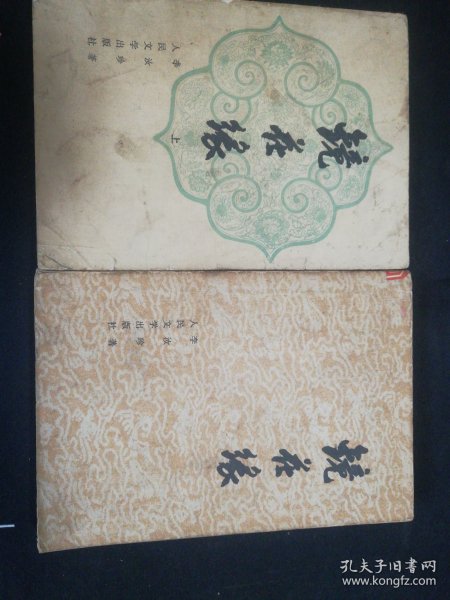 鏡花緣
上
李汝珍著
人民文學出版社
鏡花緣
李汝珍著
人民文學出版社
孔夫子旧书网
www.kongfz.com